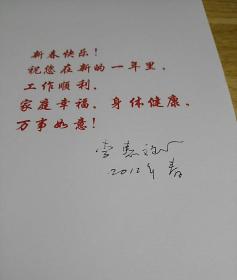 新春快乐！
祝您在新的一年里，
工作顺利，
家庭幸福，身体健康，
万事如意！
2012年春